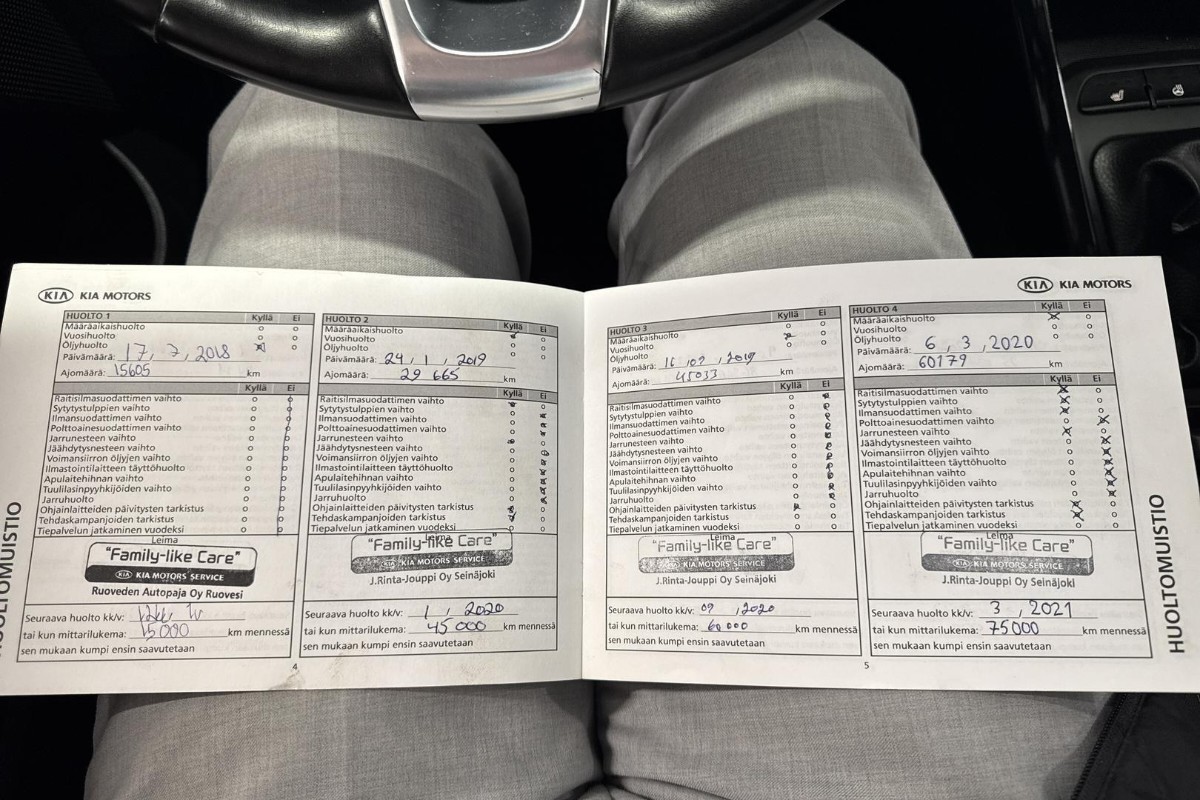 KIA KIA MOTORS
HUOLTO 1 Kyllä Ei
Määräaikaishuolto
Vuosihuolto
Öljyhuolto
Päivämäärä: 17, 7, 2018
Ajomäärä: 15605 km
Kyllä Ei
Raitisilmasuodattimen vaihto
Sytytystulppien vaihto
Ilmansuodattimen vaihto
Polttoainesuodattimen vaihto
Jarrunesteen vaihto
Jäähdytysnesteen vaihto
Voimansiirron öljyjen vaihto
Ilmastointilaitteen täyttöhuolto
Apulaitehihnan vaihto
Tuulilasinpyyhkijöiden vaihto
Jarruhuolto
Ohjainlaitteiden päivitysten tarkistus
Tehdaskampanjoiden tarkistus
Tiepalvelun jatkaminen vuodeksi
Leima
"Family-like Care"
KIA KIA MOTORS SERVICE
Ruoveden Autopaja Oy Ruovesi
Seuraava huolto kk/v:
tai kun mittarilukema: 15000 km mennessä
sen mukaan kumpi ensin saavutetaan
HUOLTO 2 Kyllä Ei
Määräaikaishuolto
Vuosihuolto
Öljyhuolto
Päivämäärä: 24, 1, 2019
Ajomäärä: 29 665 km
Kyllä Ei
Raitisilmasuodattimen vaihto
Sytytystulppien vaihto
Ilmansuodattimen vaihto
Polttoainesuodattimen vaihto
Jarrunesteen vaihto
Jäähdytysnesteen vaihto
Voimansiirron öljyjen vaihto
Ilmastointilaitteen täyttöhuolto
Apulaitehihnan vaihto
Tuulilasinpyyhkijöiden vaihto
Jarruhuolto
Ohjainlaitteiden päivitysten tarkistus
Tehdaskampanjoiden tarkistus
Tiepalvelun jatkaminen vuodeksi
Leima
"Family-like Care"
KIA KIA MOTORS SERVICE
J.Rinta-Jouppi Oy Seinäjoki
Seuraava huolto kk/v: 1, 2020
tai kun mittarilukema: 45000 km mennessä
sen mukaan kumpi ensin saavutetaan
4
HUOLTOMUISTIO
KIA KIA MOTORS
HUOLTO 3 Kyllä Ei
Määräaikaishuolto
Vuosihuolto
Öljyhuolto
Päivämäärä: 16, 09, 2019
Ajomäärä: 45033 km
Kyllä Ei
Raitisilmasuodattimen vaihto
Sytytystulppien vaihto
Ilmansuodattimen vaihto
Polttoainesuodattimen vaihto
Jarrunesteen vaihto
Jäähdytysnesteen vaihto
Voimansiirron öljyjen vaihto
Ilmastointilaitteen täyttöhuolto
Apulaitehihnan vaihto
Tuulilasinpyyhkijöiden vaihto
Jarruhuolto
Ohjainlaitteiden päivitysten tarkistus
Tehdaskampanjoiden tarkistus
Tiepalvelun jatkaminen vuodeksi
Leima
"Family-like Care"
KIA KIA MOTORS SERVICE
J.Rinta-Jouppi Oy Seinäjoki
Seuraava huolto kk/v: 09, 2020
tai kun mittarilukema: 60000 km mennessä
sen mukaan kumpi ensin saavutetaan
HUOLTO 4 Kyllä Ei
Määräaikaishuolto
Vuosihuolto
Öljyhuolto
Päivämäärä: 6, 3, 2020
Ajomäärä: 60179 km
Kyllä Ei
Raitisilmasuodattimen vaihto
Sytytystulppien vaihto
Ilmansuodattimen vaihto
Polttoainesuodattimen vaihto
Jarrunesteen vaihto
Jäähdytysnesteen vaihto
Voimansiirron öljyjen vaihto
Ilmastointilaitteen täyttöhuolto
Apulaitehihnan vaihto
Tuulilasinpyyhkijöiden vaihto
Jarruhuolto
Ohjainlaitteiden päivitysten tarkistus
Tehdaskampanjoiden tarkistus
Tiepalvelun jatkaminen vuodeksi
Leima
"Family-like Care"
KIA KIA MOTORS SERVICE
J.Rinta-Jouppi Oy Seinäjoki
Seuraava huolto kk/v: 3, 2021
tai kun mittarilukema: 75000 km mennessä
sen mukaan kumpi ensin saavutetaan
5
HUOLTOMUISTIO